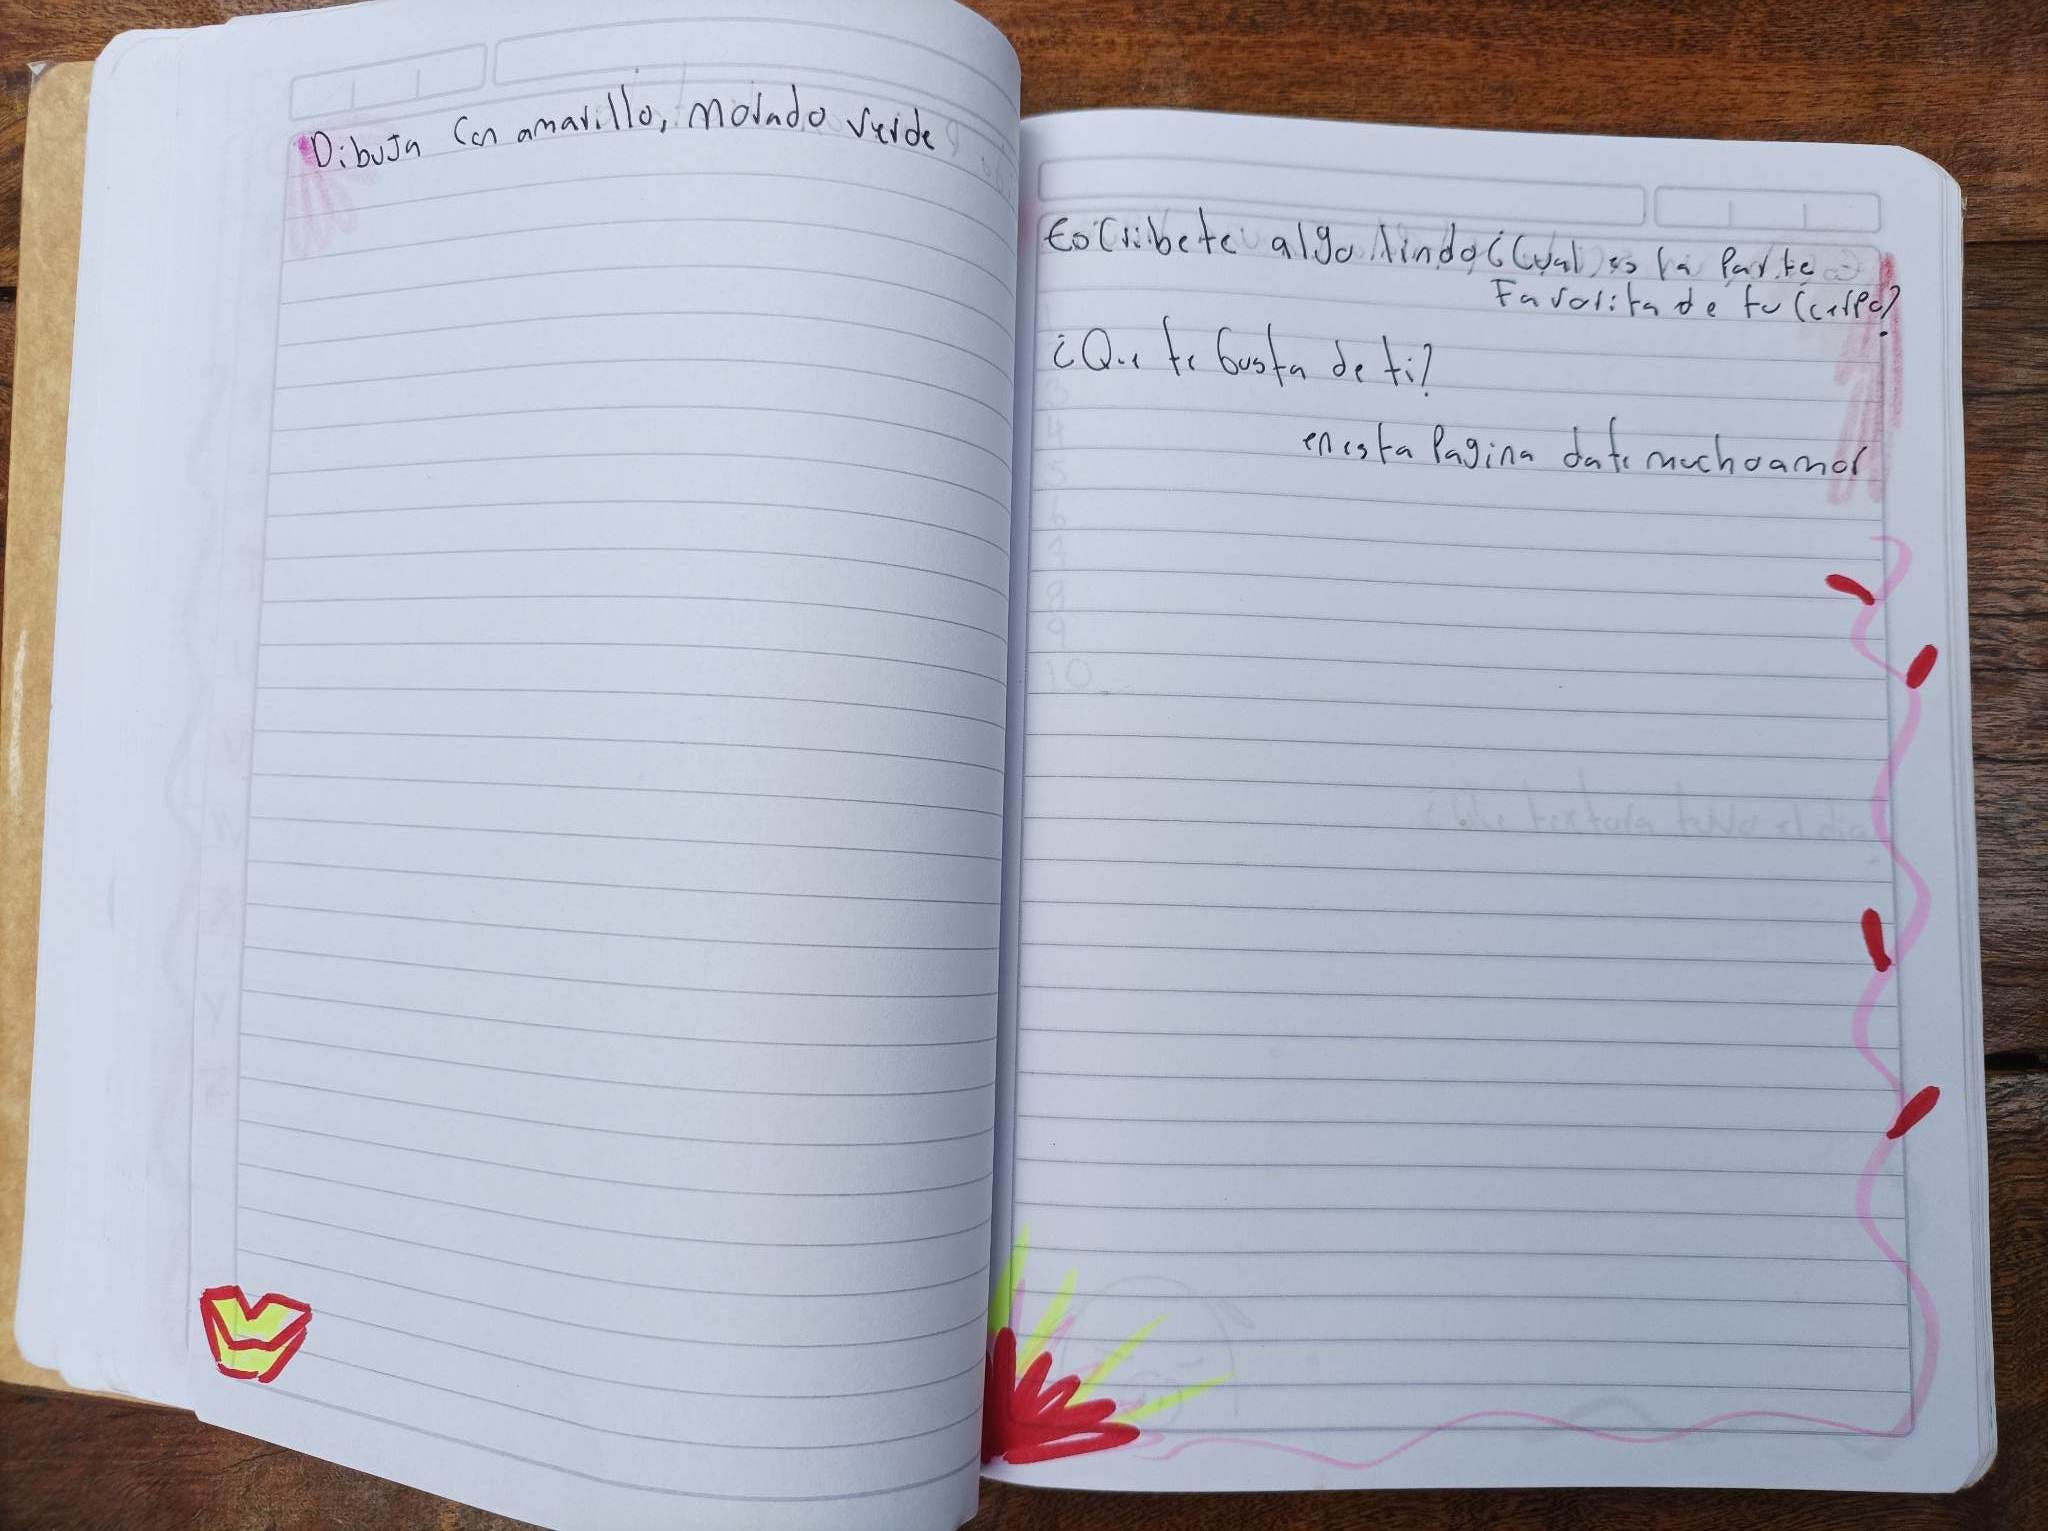 Dibuja con amarillo, morado verde
Escribete algo lindo ¿Cual es la parte
Favorita de tu Cuerpo?
¿Que te Gusta de ti?
en esta Pagina date mucho amor
3
4
5
6
7
8
9
10